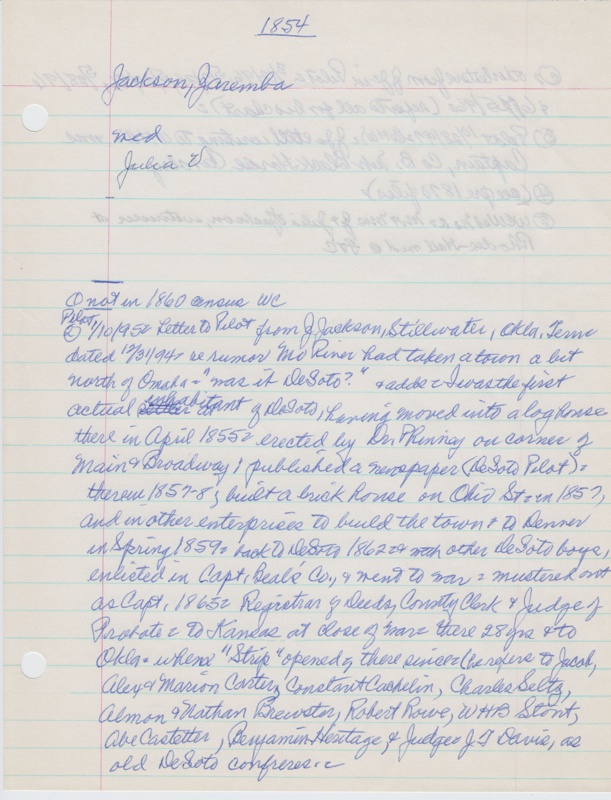 1854
Jackson, Zaremba
med
Julia V
① not in 1860 census WC
Pilot,
② 1/10/95 = Letter to Pilot from J. Jackson, Stillwater, Okla. Terr.
dated 12/31/94 = re rumor Mo River had taken a town a bit
north of Omaha = "was it DeSoto?" & adds = I was the first
actual inhabitant of DeSoto, having moved into a log house
there in April 1855 = erected by Dr. Phinney on corner of
Main & Broadway; published a newspaper (DeSoto Pilot) =
therein 1857-8; built a brick house on Ohio St = in 1857,
and in other enterprises to build the town & to Denver
in Spring 1859 = back to DeSoto 1862 = & with other DeSoto boys,
enlisted in Capt. Beal's Co., & went to war = mustered out
as Capt. 1865 = Registrar of Deeds, County Clerk & Judge of
Probate = to Kansas at close of war = there 28 yrs & to
Okla = when "Strip" opened & there since = (he refers to Jacob,
Alex & Marion Carter, Constant Cachelin, Charles Seltz,
Almon & Nathan Brewster, Robert Rowe, WHB Stout,
Abe Castetter, Benjamin Heritage & Judge J T Davis, as
old DeSoto confreres. =